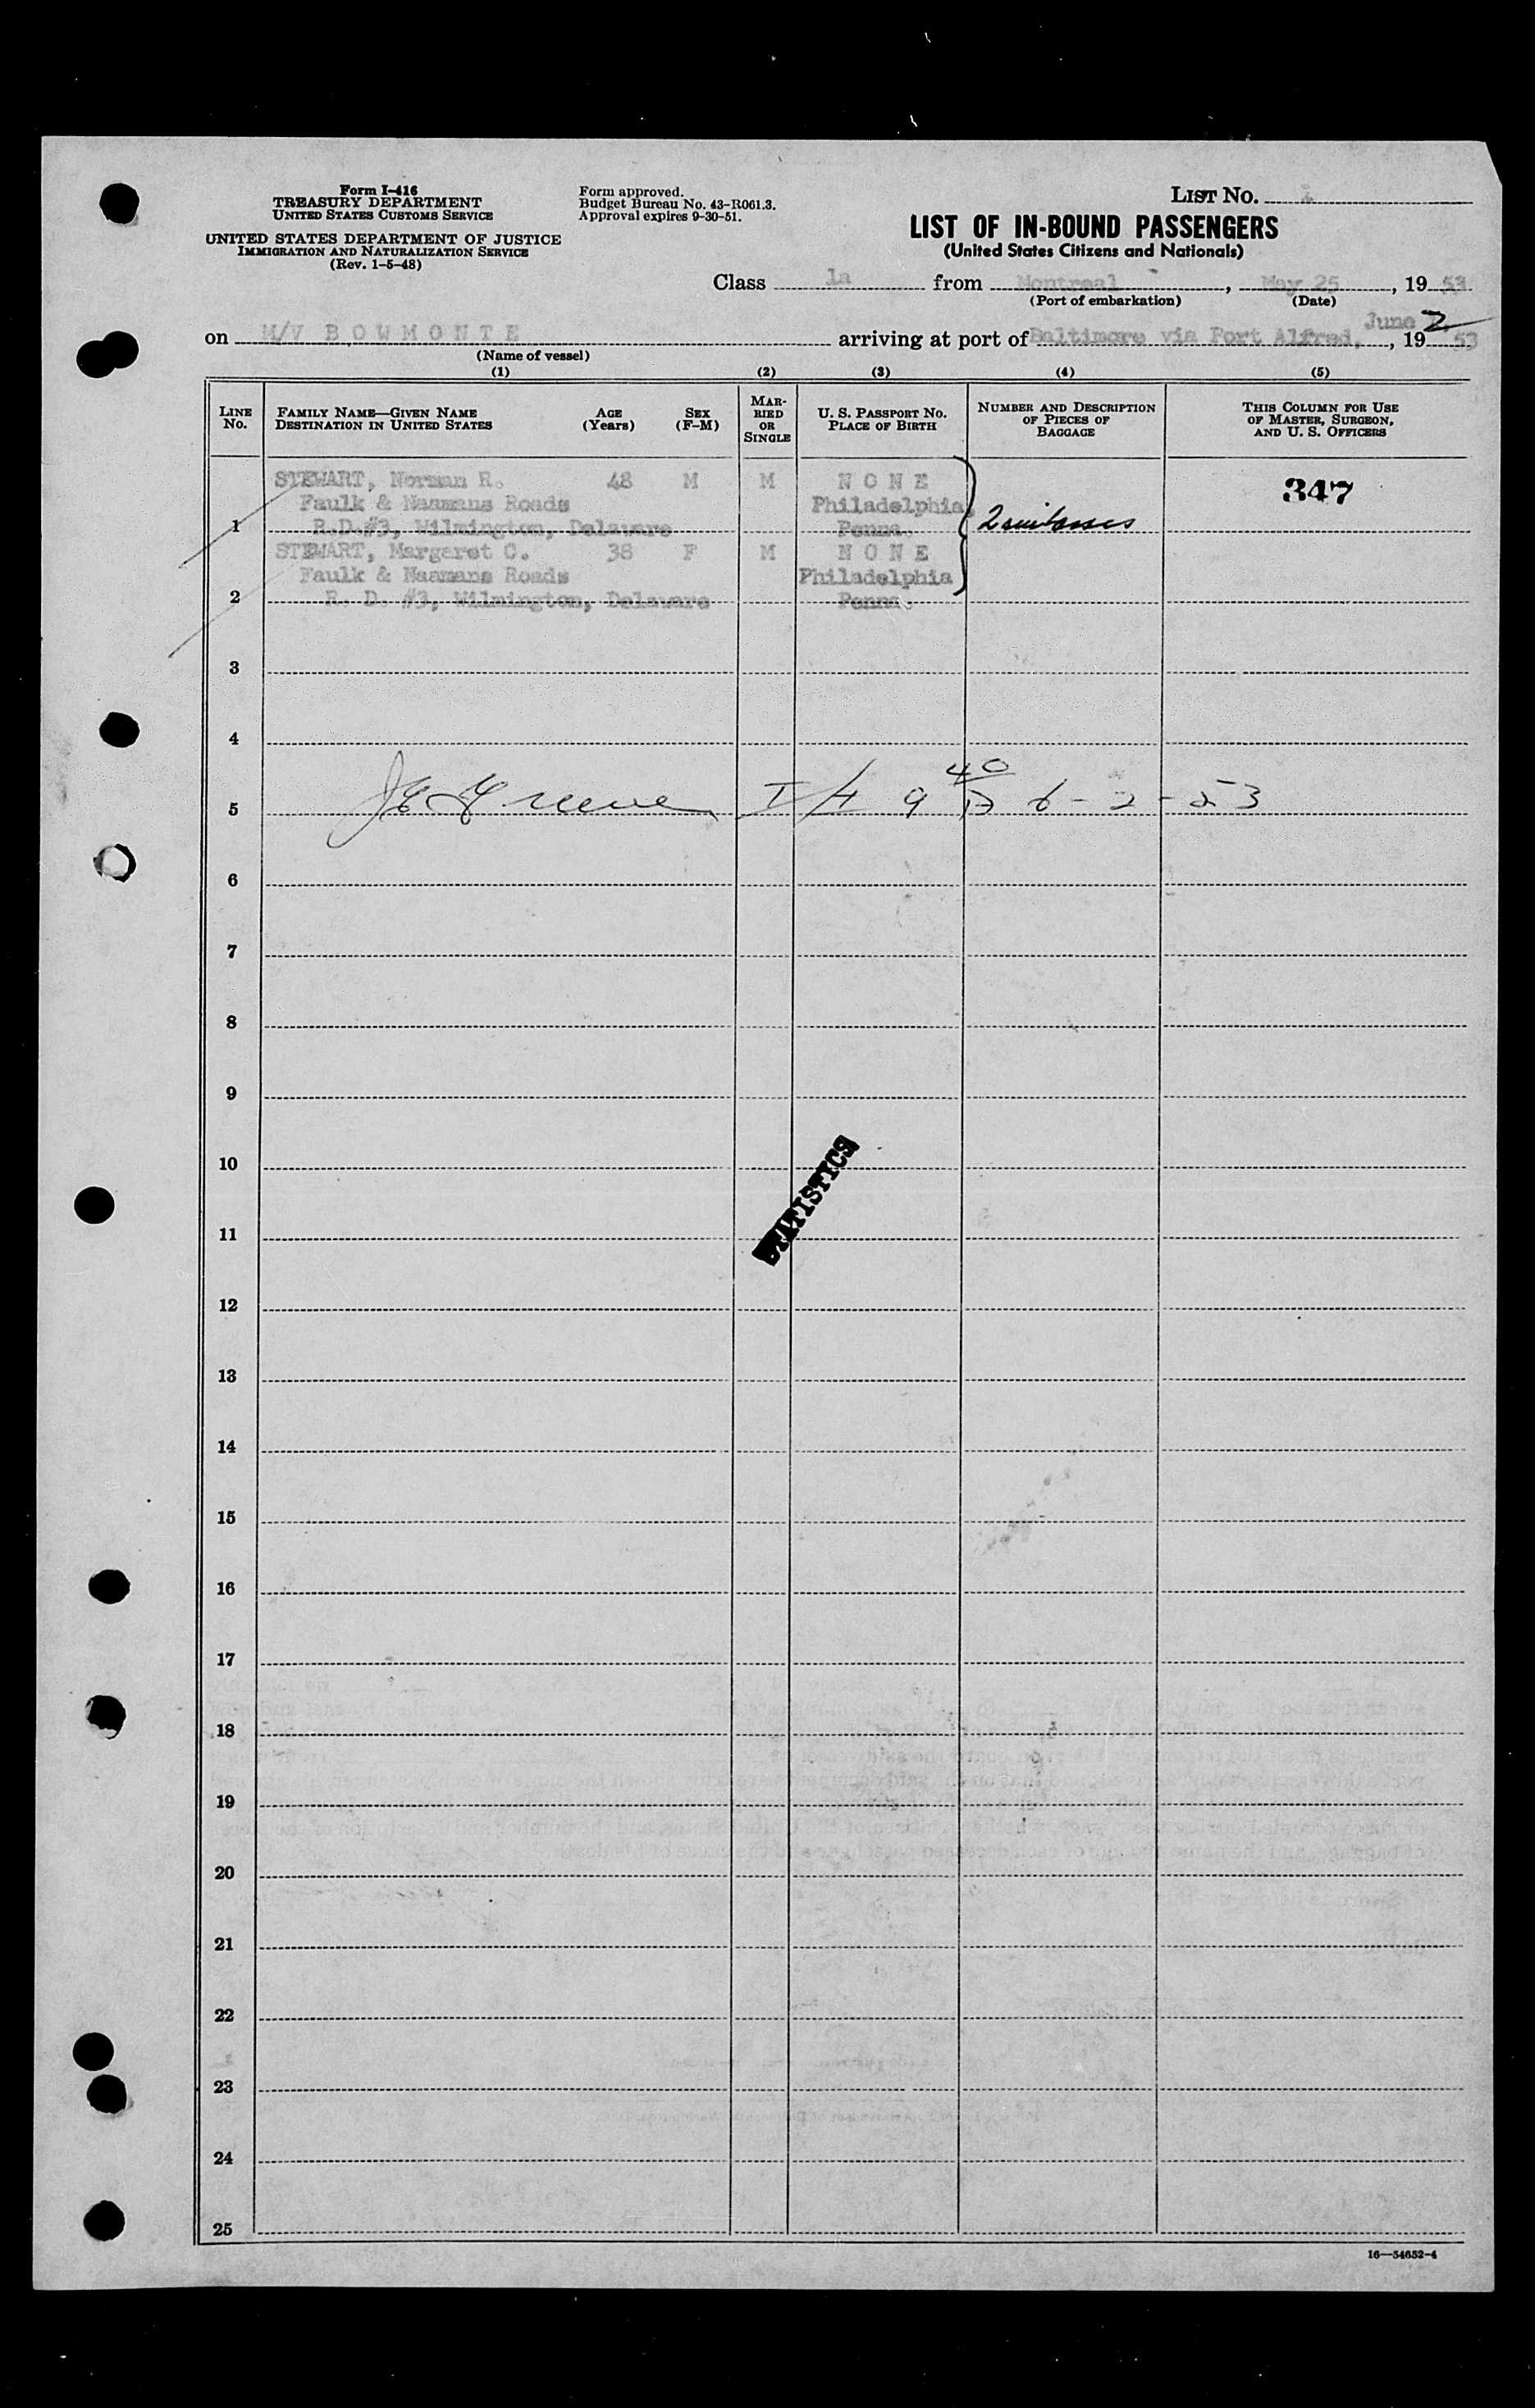 Form I-416
TREASURY DEPARTMENT
UNITED STATES CUSTOMS SERVICE
UNITED STATES DEPARTMENT OF JUSTICE
IMMIGRATION AND NATURALIZATION SERVICE
(Rev. 1-5-48)
Form approved.
Budget Bureau No. 43-R061.3.
Approval expires 9-30-51.
LIST NO.
LIST OF IN-BOUND PASSENGERS
(United States Citizens and Nationals)
Class 1a from Montreal, May 25, 1953
(Port of embarkation) (Date)
on M/V BOWMONTE arriving at port of Baltimore via Port Alfred, June 2, 1953
(Name of vessel)
(1) (2) (3) (4) (5)
LINE NO.
FAMILY NAME—GIVEN NAME
DESTINATION IN UNITED STATES
AGE (Years)
SEX (F-M)
MARRIED OR SINGLE
U. S. PASSPORT NO.
PLACE OF BIRTH
NUMBER AND DESCRIPTION OF PIECES OF BAGGAGE
THIS COLUMN FOR USE OF MASTER, SURGEON, AND U. S. OFFICERS
STEWART, Norman R. 48 M M NONE 347
Faulk & Naamans Roads Philadelphia,
1 R.D.#3, Wilmington, Delaware Penna. 2 suitcases
STEWART, Margaret C. 38 F M NONE
Faulk & Naamans Roads Philadelphia
2 R. D. #3, Wilmington, Delaware Penna.
3
4
5 9 40 6-2-53
6
7
8
9
10
STATISTICS
11
12
13
14
15
16
17
18
19
20
21
22
23
24
25
16—54652-4